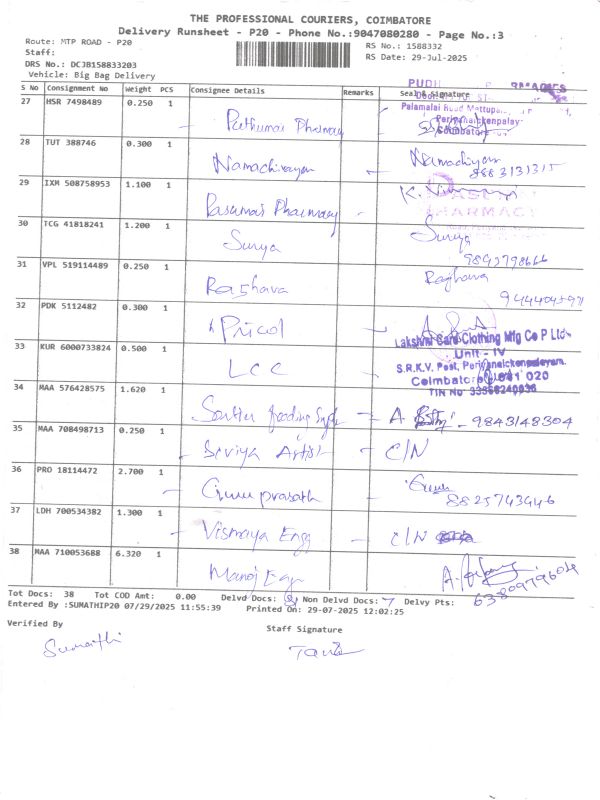 THE PROFESSIONAL COURIERS, COIMBATORE
Delivery Runsheet - P20 - Phone No.:9047080280 - Page No.:3
Route: MTP ROAD - P20
RS No.: 1588332
Staff:
RS Date: 29-Jul-2025
DRS No.: DCJB158833203
Vehicle: Big Bag Delivery
S No Consignment No Weight PCS Consignee Details Remarks Seal & Signature
Palamalai Road
Coimbatore
27 HSR 7498489 0.250 1 Pharmacy
28 TUT 388746 0.300 1
8883131315
29 IXM 508758953 1.100 1 Pharmacy
PHARMACY
30 TCG 41818241 1.200 1 Surya Surya
31 VPL 519114489 0.250 1 Raghava Raghava
32 PDK 5112482 0.300 1 Pricol
33 KUR 6000733824 0.500 1 LCC
Lakshmi Clothing Mfg Co P Ltd
Unit - IV
S.R.K.V. Post, Periyanaickenpalayam.
Coimbatore - 641 020
TIN No
34 MAA 576428575 1.620 1 A 9843148304
35 MAA 708498713 0.250 1 Artist - C/N
36 PRO 18114472 2.700 1 Guruprasath Guru
8825743446
37 LDH 700534382 1.300 1 Vismaya Engg C/N
38 MAA 710053688 6.320 1 Manoj Engg
6380979604
Tot Docs: 38 Tot COD Amt: 0.00 Delvd Docs: Non Delvd Docs: 7 Delvy Pts:
Entered By :SUMATHIP20 07/29/2025 11:55:39 Printed On: 29-07-2025 12:02:25
Verified By Staff Signature
Sumathi